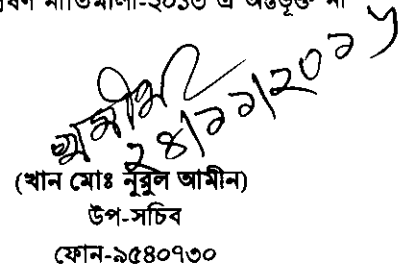 নীতিমালা-২০১৩ এ অন্তর্ভূক্ত না
২৪/১১/২০১৫
(খান মোঃ নূরুল আমীন)
উপ-সচিব
ফোন-৯৫৪০৭৩০